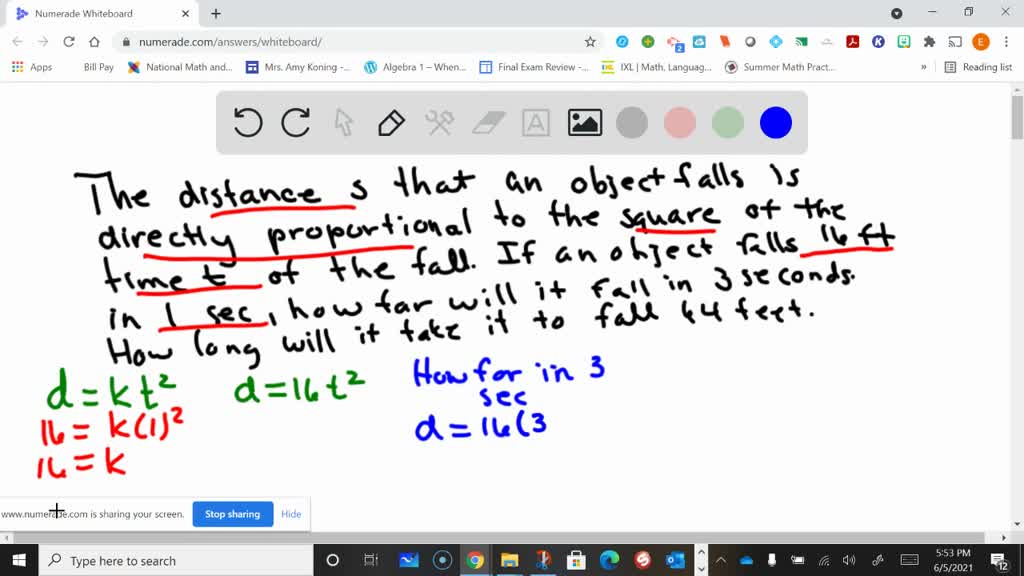 Numerade Whiteboard
numerade.com/answers/whiteboard/
Apps Bill Pay National Math and... Mrs. Amy Koning -... Algebra 1 – When... Final Exam Review -... IXL | Math, Languag... Summer Math Pract... » Reading list
The distance s that an object falls is
directly proportional to the square of the
time t of the fall. If an object falls 16 ft
in 1 sec, how far will it fall in 3 seconds.
How long will it take it to fall 64 feet.
d = kt²
16 = k(1)²
16 = k
d = 16t²
How far in 3
sec
d = 16(3
www.numerade.com is sharing your screen. Stop sharing Hide
Type here to search
5:53 PM
6/5/2021
12